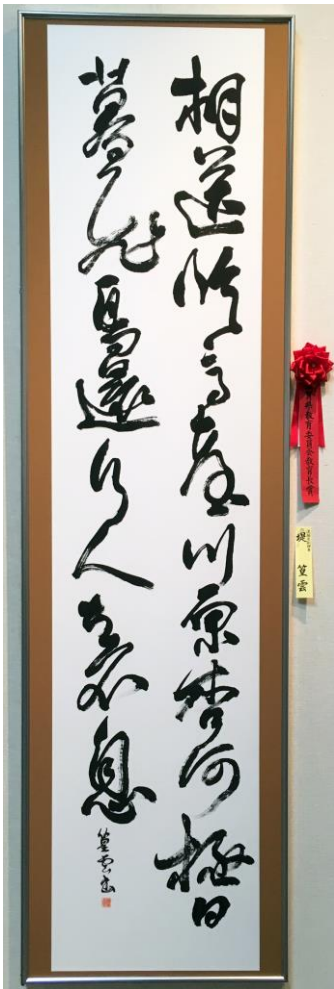 相送臨高臺川原杳何極日
暮飛鳥還行人去不息
篁雲書
縣教育委員会教育長賞
堤 篁雲